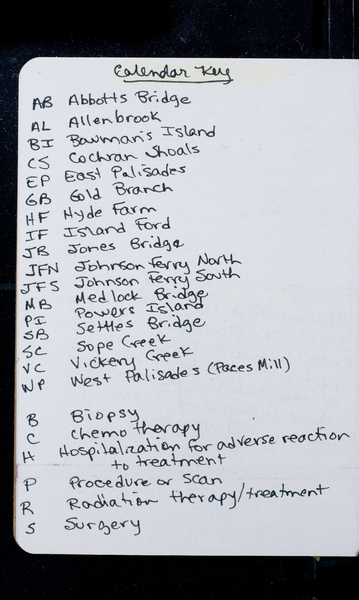 Calendar Key
AB Abbotts Bridge
AL Allenbrook
BI Bowman's Island
CS Cochran Shoals
EP East Palisades
GB Gold Branch
HF Hyde Farm
IF Island Ford
JB Jones Bridge
JFN Johnson Ferry North
JFS Johnson Ferry South
MB Medlock Bridge
PI Powers Island
SB Settles Bridge
SC Sope Creek
VC Vickery Creek
WP West Palisades (Paces Mill)
B Biopsy
C Chemotherapy
H Hospitalization for adverse reaction
to treatment
P Procedure or Scan
R Radiation therapy/treatment
S Surgery